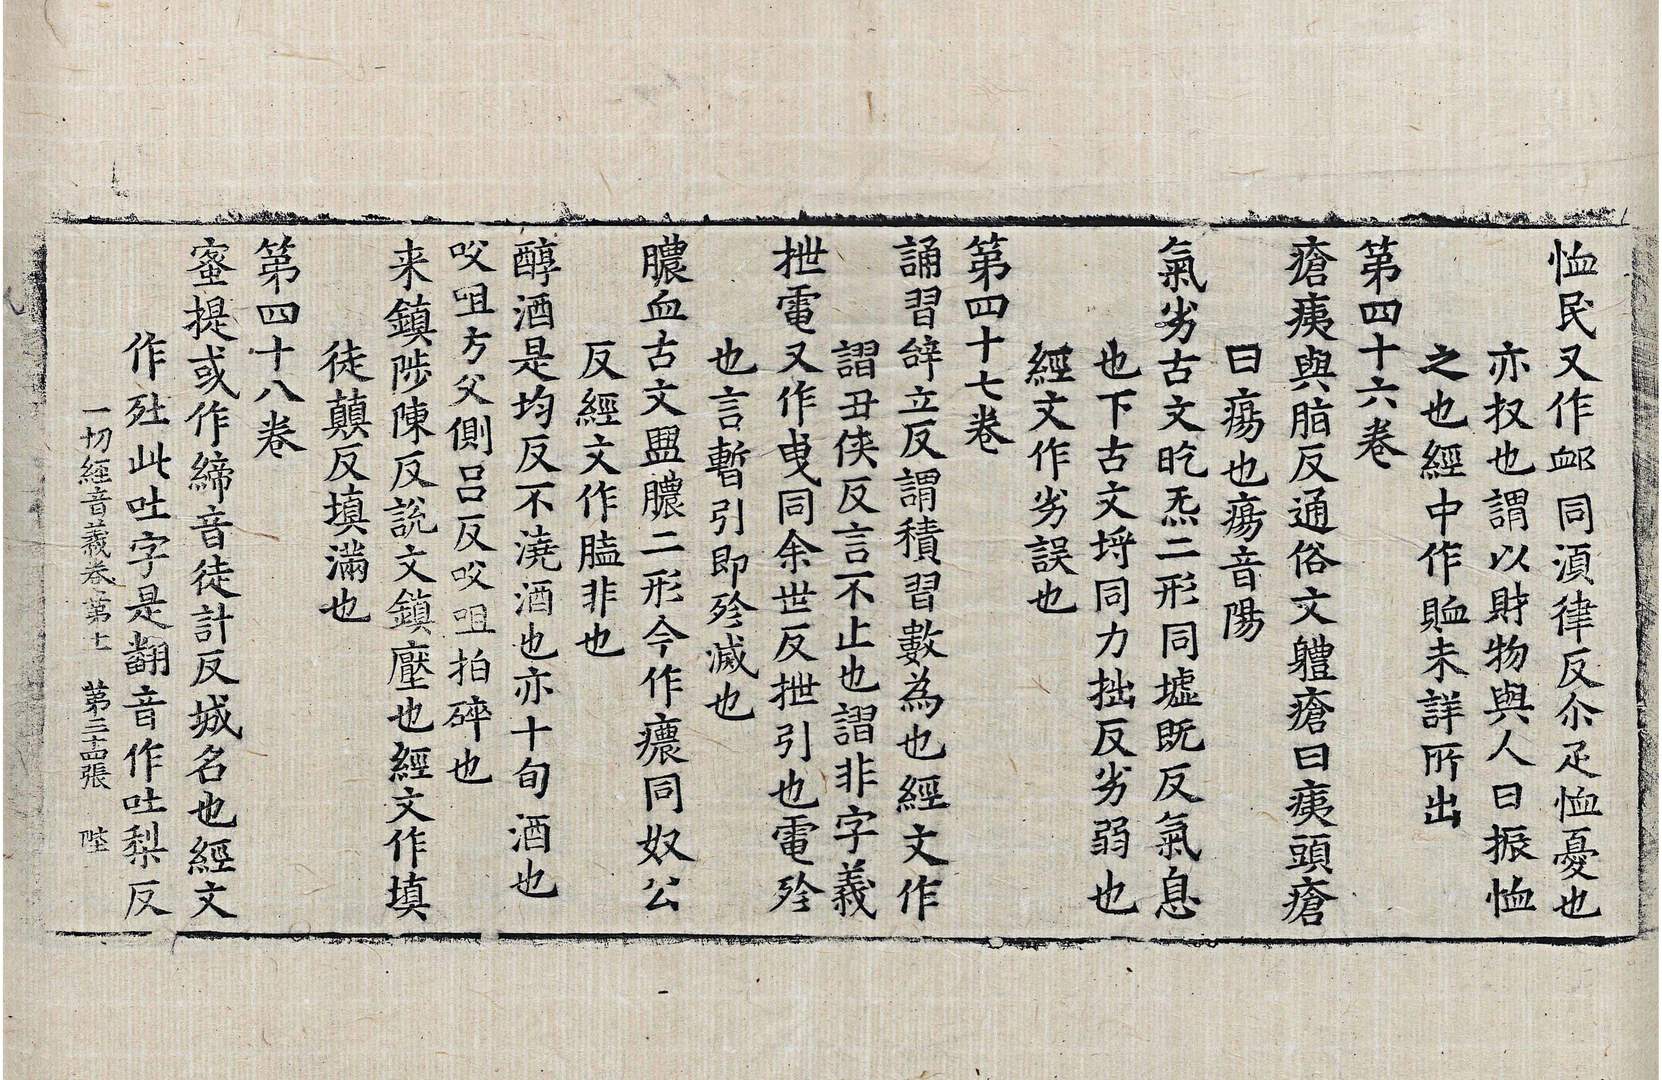 恤民又作䘏同湏律反尒疋恤憂也
亦扠也謂以財物與人曰振恤
之也經中作賉未詳所出
第四十六卷
瘡痍與脂反通俗文軆瘡曰痍頭瘡
曰瘍也瘍音陽
氣劣古文盵炁二形同墟旣反氣息
也下古文埒同力拙反劣弱也
經文作劣誤也
第四十七卷
誦習辝立反謂積習數為也經文作
謵丑侠反言不止也謵非字義
抴電又作曳同余世反抴引也電殄
也言暫引即殄滅也
膿血古文盥膿二形今作癑同奴公
反經文作膉非也
醇酒是均反不澆酒也亦十旬酒也
㕮咀方父側呂反㕮咀拍碎也
来鎮陟陳反說文鎮壓也經文作填
徒蘏反填滿也
第四十八卷
蜜提或作締音徒計反城名也經文
作兙此吐字是翻音作吐梨反
一切經音義卷第十　第三十四張　陸